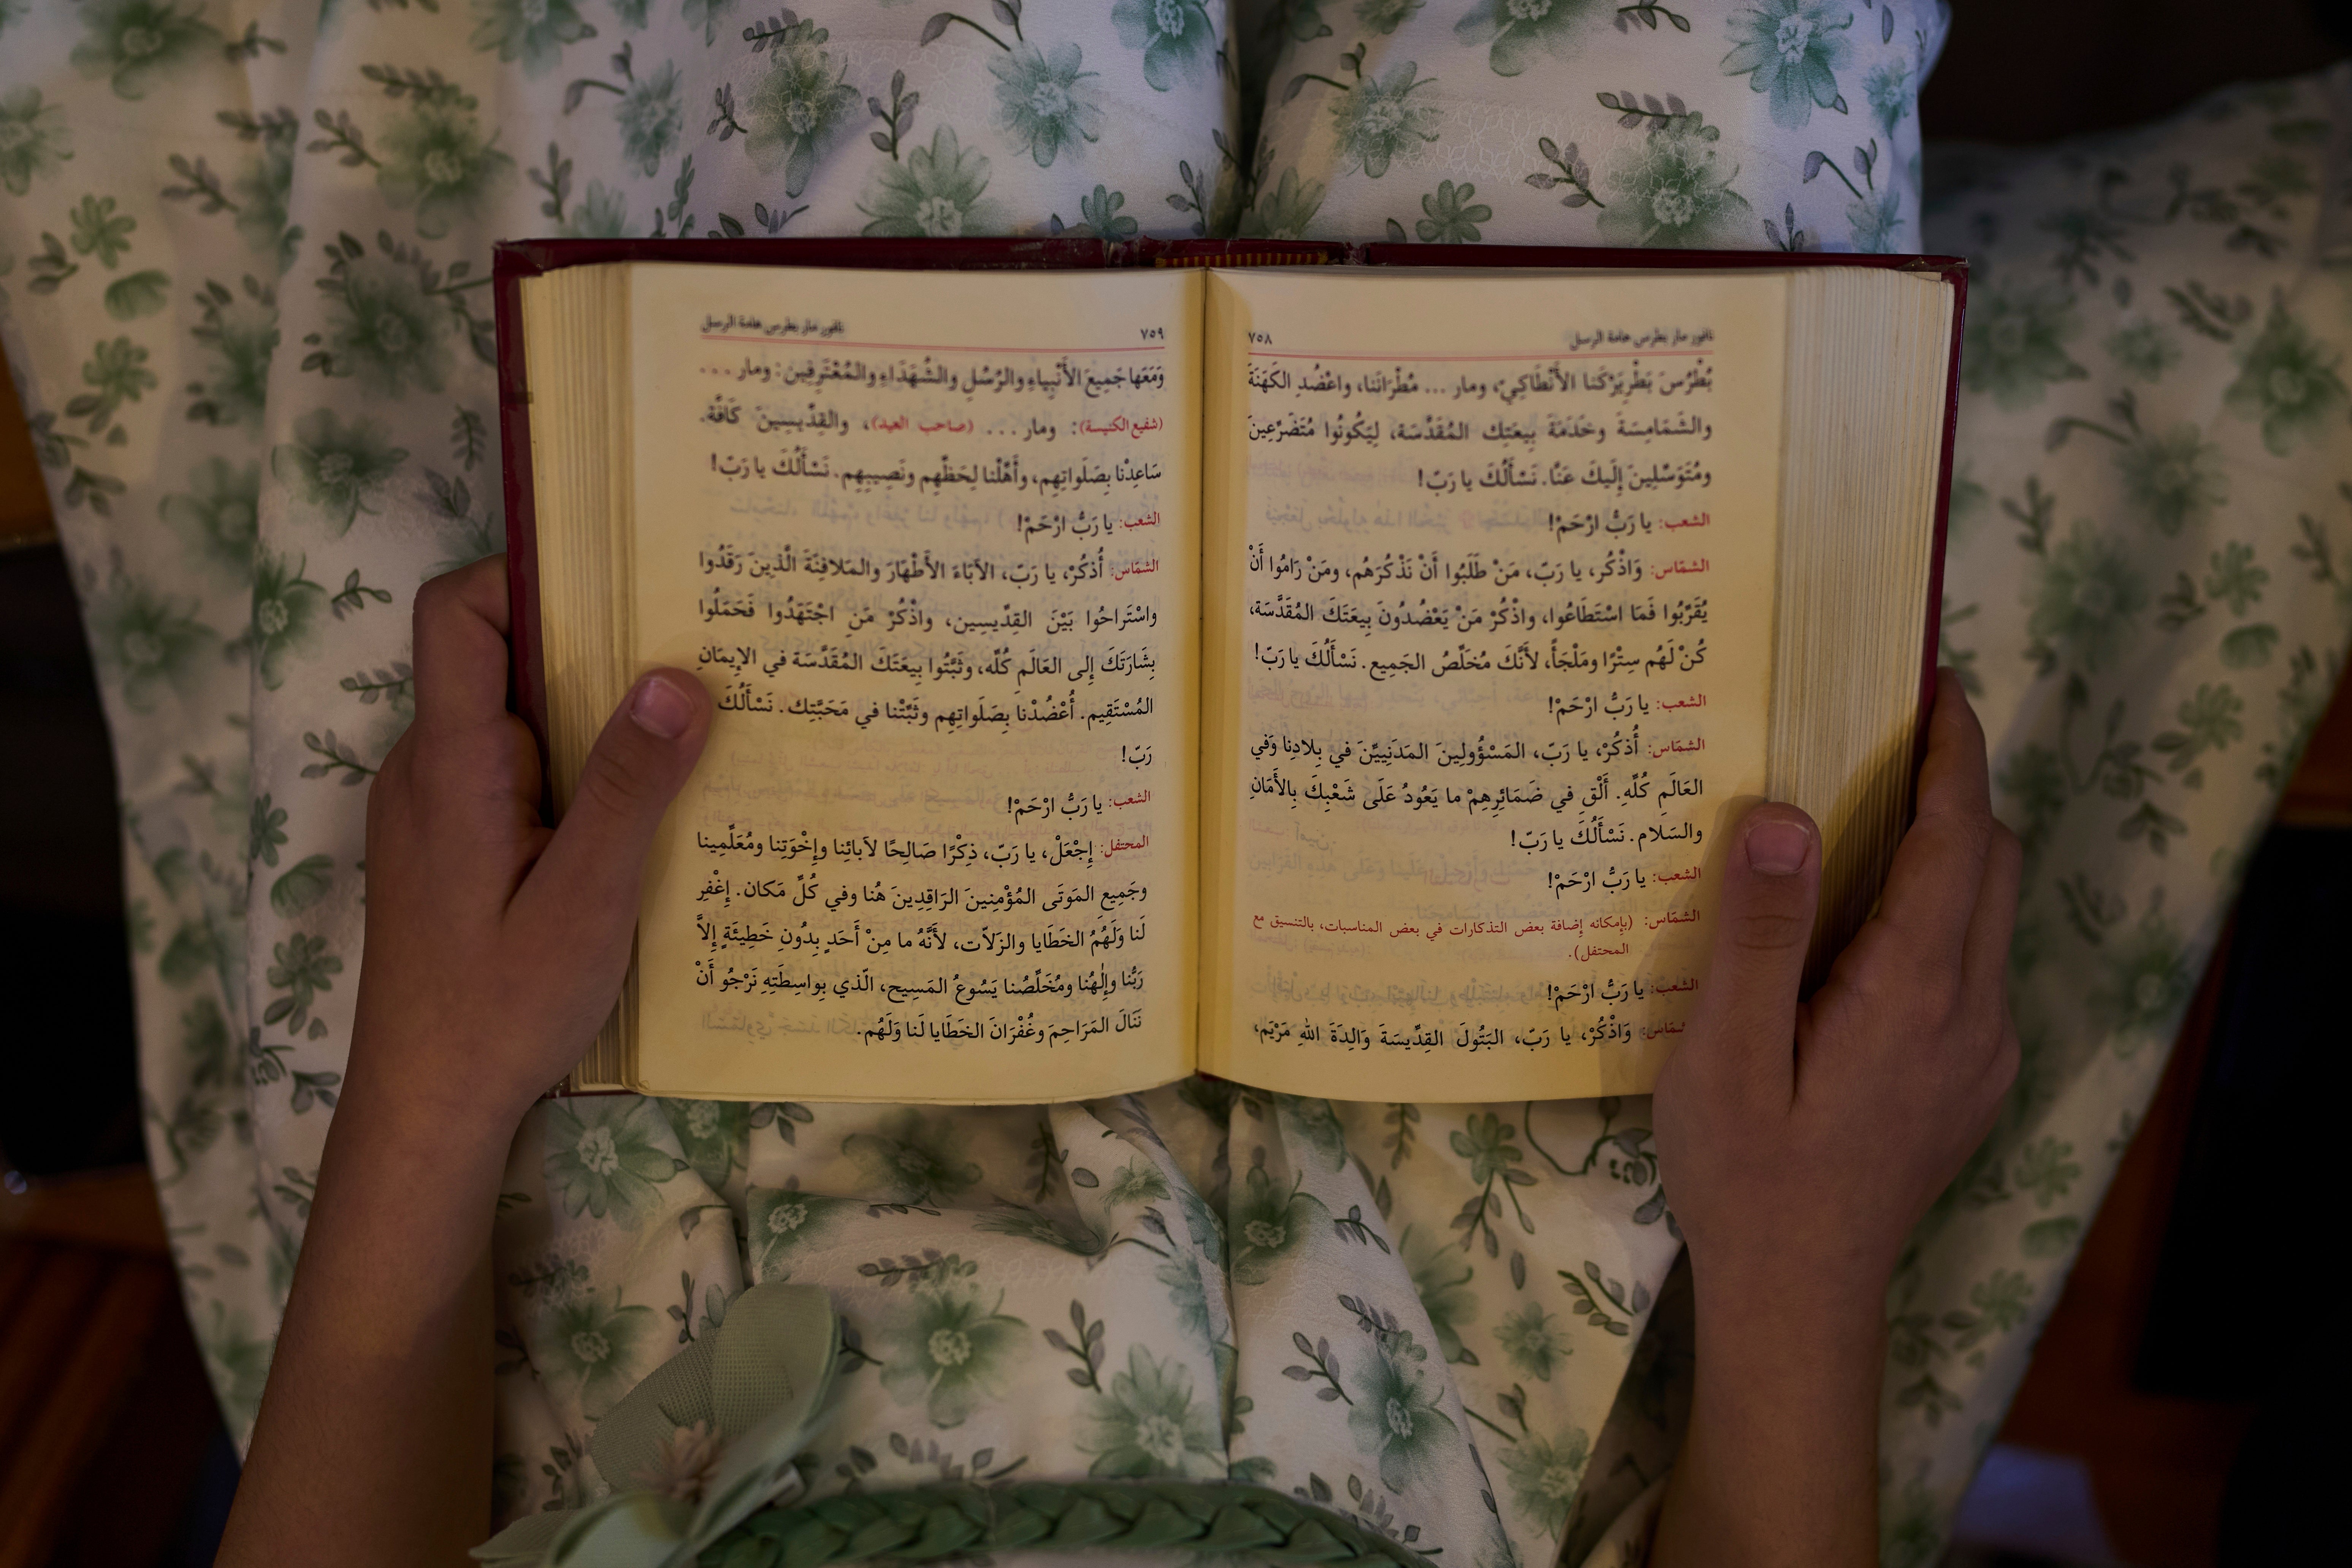 نافور مار بطرس هامة الرسل
٧٥٨
بُطْرُسَ بَطْرِيَرْكَنا الأَنْطَاكِيّ، ومار ... مُطْرَانَنا، واعْضُدِ الكَهَنَةَ
والشَّمَامِسَةَ وخَدَمَةَ بِيعَتِكَ المُقَدَّسَة، لِيَكُونُوا مُتَضَرِّعِينَ
ومُتَوَسِّلِينَ إِلَيكَ عَنَّا. نَسْأَلُكَ يا رَبّ!
الشعب: يا رَبُّ ارْحَمْ!
الشمّاس: وَاذْكُر، يا رَبّ، مَنْ طَلَبُوا أَنْ نَذْكُرَهُم، ومَنْ رَامُوا أَنْ
يُقَرِّبُوا فَمَا اسْتَطَاعُوا، واذْكُرْ مَنْ يَعْضُدُونَ بِيعَتَكَ المُقَدَّسَة،
كُنْ لَهُم سِتْرًا ومَلْجَأً، لأَنَّكَ مُخَلِّصُ الجَمِيع. نَسْأَلُكَ يا رَبّ!
الشعب: يا رَبُّ ارْحَمْ!
الشمّاس: أُذكُرْ، يا رَبّ، المَسْؤُولِينَ المَدَنِيِّينَ في بِلادِنا وَفي
العَالَمِ كُلِّهِ. أَلْقِ في ضَمَائِرِهِمْ ما يَعُودُ عَلَى شَعْبِكَ بِالأَمَانِ
والسَلام. نَسْأَلُكَ يا رَبّ!
الشعب: يا رَبُّ ارْحَمْ!
الشمّاس: (بإمكانه إضافة بعض التذكارات في بعض المناسبات، بالتنسيق مع
المحتفل).
الشعب: يا رَبُّ ارْحَمْ!
وَاذْكُرْ، يا رَبّ، البَتُولَ القِدِّيسَةَ وَالِدَةَ اللهِ مَرْيَم،
نافور مار بطرس هامة الرسل
٧٥٩
وَمَعَها جَمِيعَ الأَنْبِياءِ والرُسُلِ والشُهَدَاءِ والمُعْتَرِفِين: ومار ...
(شفيع الكنيسة): ومار ... (صاحب العيد)، والقِدِّيسِينَ كَافَّة.
سَاعِدْنا بِصَلَواتِهِم، وأَهِّلْنا لِحَظِّهِم ونَصِيبِهِم. نَسْأَلُكَ يا رَبّ!
الشعب: يا رَبُّ ارْحَمْ!
الشمّاس: أُذكُرْ، يا رَبّ، الآبَاءَ الأَطْهَارَ والمَلافِنَةَ الَّذِينَ رَقَدُوا
واسْتَراحُوا بَيْنَ القِدِّيسِين، واذْكُرْ مَنِ اجْتَهَدُوا فَحَمَلُوا
بِشَارَتَكَ إِلى العَالَمِ كُلِّه، وثَبَّتُوا بِيعَتَكَ المُقَدَّسَة في الإِيمَانِ
المُسْتَقِيم. أُعْضُدْنا بِصَلَواتِهِم وثَبِّتْنا في مَحَبَّتِك. نَسْأَلُكَ
رَبّ!
الشعب: يا رَبُّ ارْحَمْ!
المحتفل: إِجْعَلْ، يا رَبّ، ذِكْرًا صَالِحًا لآبائِنا وإِخْوَتِنا ومُعَلِّمِينا
وجَمِيعِ المَوتَى المُؤْمِنِينَ الرَاقِدِينَ هُنا وفي كُلِّ مَكان. إِغْفِرِ
لَنا وَلَهُمُ الخَطَايا والزَلاّت، لأَنَّهُ ما مِنْ أَحَدٍ بِدُونِ خَطِيئَةٍ إِلاَّ
رَبُّنا وإِلٰهُنا ومُخَلِّصُنا يَسُوعُ المَسِيح، الّذي بِواسِطَتِهِ نَرْجُو أَنْ
نَنَالَ المَرَاحِمَ وغُفْرَانَ الخَطَايا لَنا وَلَهُم.